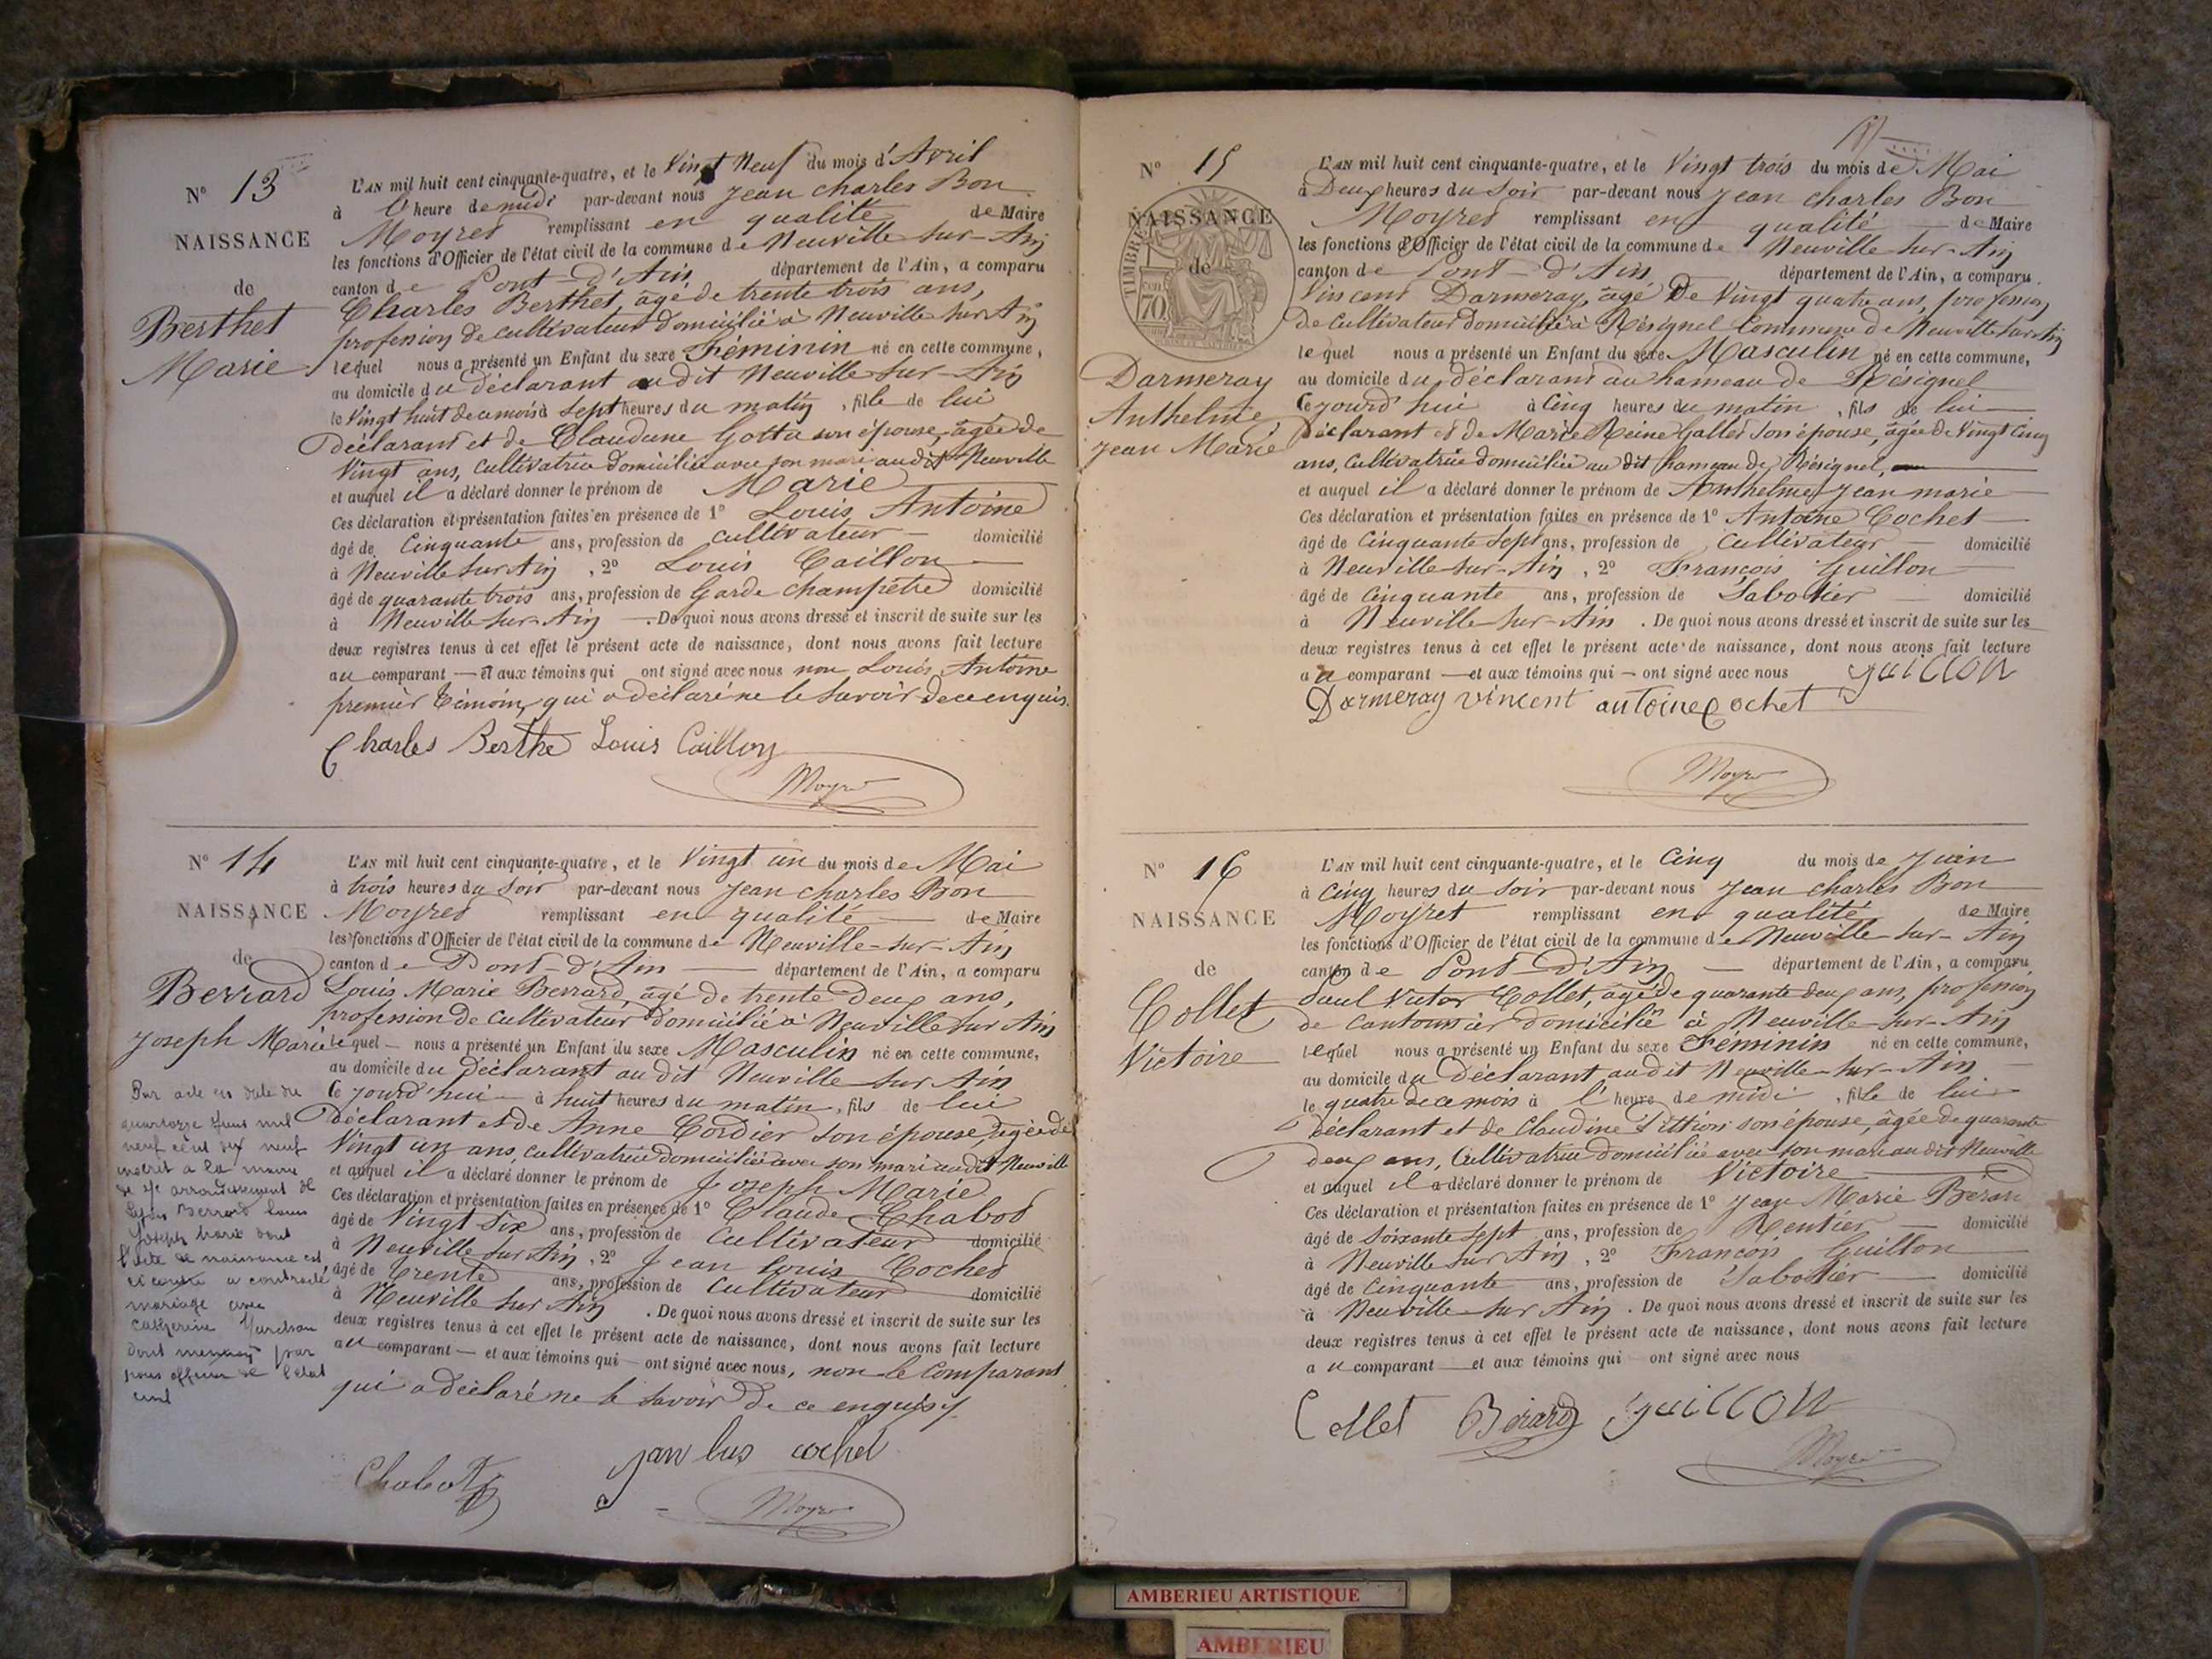 N° 13
NAISSANCE
de
Berthet
Marie
L'AN mil huit cent cinquante-quatre, et le Vingt Neuf du mois d'Avril
à l'heure de midi par-devant nous Jean Charles Bon
Moyret remplissant en qualité de Maire
les fonctions d'Officier de l'état civil de la commune de Neuville sur Ain
canton de Pont-d'Ain département de l'Ain, a comparu
Charles Berthet âgé de trente trois ans,
profession de cultivateur domicilié à Neuville sur Ain
lequel nous a présenté un Enfant du sexe Féminin né en cette commune,
au domicile du déclarant audit Neuville sur Ain
le Vingt huit de ce mois à sept heures du matin, fille de lui
déclarant et de Claudine Gotta son épouse, âgée de
Vingt ans, cultivatrice domiciliée avec son mari audit Neuville
et auquel il a déclaré donner le prénom de Marie
Ces déclaration et présentation faites en présence de 1° Louis Antoine
âgé de Cinquante ans, profession de cultivateur domicilié
à Neuville sur Ain, 2° Louis Caillon
âgé de quarante trois ans, profession de Garde champêtre domicilié
à Neuville sur Ain. De quoi nous avons dressé et inscrit de suite sur les
deux registres tenus à cet effet le présent acte de naissance, dont nous avons fait lecture
au comparant et aux témoins qui ont signé avec nous non Louis Antoine
premier témoin, qui a déclaré ne le savoir de ce enquis.
Charles Berthe Louis Caillon
Moyret
N° 14
NAISSANCE
de
Berrard
Joseph Marie
Par acte en date du
quatorze Juin mil
neuf cent dix neuf
inscrit à la mairie
du arrondissement de
Lyon Berrard Louis
Joseph Marie dont
l'acte de naissance est
ci contre a contracté
mariage avec
Catherine
dont mention par
nous officier de l'état
civil
L'AN mil huit cent cinquante-quatre, et le Vingt un du mois de Mai
à trois heures du soir par-devant nous Jean charles Bon
Moyret remplissant en qualité de Maire
les fonctions d'Officier de l'état civil de la commune de Neuville-sur-Ain
canton de Pont-d'Ain département de l'Ain, a comparu
Louis Marie Berrard, âgé de trente deux ans,
profession de cultivateur domicilié à Neuville sur Ain
lequel nous a présenté un Enfant du sexe Masculin né en cette commune,
au domicile du Déclarant audit Neuville sur Ain
Ce jourd'hui à huit heures du matin, fils de lui
déclarant et de Anne Cordier son épouse, âgée de
Vingt un ans, cultivatrice domiciliée avec son mari audit Neuville
et auquel il a déclaré donner le prénom de Joseph Marie
Ces déclaration et présentation faites en présence de 1° Claude Chabot
âgé de Vingt six ans, profession de Cultivateur domicilié
à Neuville sur Ain, 2° Jean Louis Cochet
âgé de trente ans, profession de Cultivateur domicilié
à Neuville sur Ain. De quoi nous avons dressé et inscrit de suite sur les
deux registres tenus à cet effet le présent acte de naissance, dont nous avons fait lecture
au comparant et aux témoins qui ont signé avec nous, non le Comparant
qui a déclaré ne le savoir de ce enquis
Chabot jan luis cochet
Moyret
N° 15
NAISSANCE
de
TIMBRE
70
Darmeray
Anthelme
Jean Marie
L'AN mil huit cent cinquante-quatre, et le Vingt trois du mois de Mai
à Deux heures du Soir par-devant nous Jean charles Bon
Moyret remplissant en qualité de Maire
les fonctions d'Officier de l'état civil de la commune de Neuville sur-Ain
canton de Pont-d'Ain département de l'Ain, a comparu
Vincent Darmeray, âgé De Vingt quatre ans, profession
De Cultivateur Domicilié à Résignel Commune de Neuville sur Ain
lequel nous a présenté un Enfant du sexe Masculin né en cette commune,
au domicile du déclarant au hameau de Résignel
Ce jourd'hui à Cinq heures du matin, fils de lui
Déclarant et de Marie Reine Gallet son épouse, âgée de Vingt Cinq
ans, Cultivatrice domiciliée au dit hameau de Résignel,
et auquel il a déclaré donner le prénom de Anthelme Jean marie
Ces déclaration et présentation faites en présence de 1° Antoine Cochet
âgé de Cinquante sept ans, profession de Cultivateur domicilié
à Neuville-sur-Ain, 2° François Guillon
âgé de Cinquante ans, profession de Sabotier domicilié
à Neuville-sur-Ain. De quoi nous avons dressé et inscrit de suite sur les
deux registres tenus à cet effet le présent acte de naissance, dont nous avons fait lecture
au comparant et aux témoins qui ont signé avec nous guillon
Darmeray vincent antoine cochet
Moyret
N° 16
NAISSANCE
de
Collet
Victoire
L'AN mil huit cent cinquante-quatre, et le Cinq du mois de Juin
à Cinq heures du soir par-devant nous Jean charles Bon
Moyret remplissant en qualité de Maire
les fonctions d'Officier de l'état civil de la commune de Neuville-sur-Ain
canton de Pont-d'Ain département de l'Ain, a comparu
Paul Victor Collet, âgé de quarante deux ans, profession
de cantonnier domicilié à Neuville-sur-Ain
lequel nous a présenté un Enfant du sexe Féminin né en cette commune,
au domicile du Déclarant audit Neuville-sur-Ain
le quatre de ce mois à l'heure de midi, fille de lui
déclarant et de Claudine Pittion son épouse, âgée de quarante
deux ans, Cultivatrice domiciliée avec son mari audit Neuville
et auquel il a déclaré donner le prénom de Victoire
Ces déclaration et présentation faites en présence de 1° Jean Marie Bérard
âgé de soixante sept ans, profession de Rentier domicilié
à Neuville sur Ain, 2° François Guillon
âgé de Cinquante ans, profession de Sabotier domicilié
à Neuville-sur Ain. De quoi nous avons dressé et inscrit de suite sur les
deux registres tenus à cet effet le présent acte de naissance, dont nous avons fait lecture
au comparant et aux témoins qui ont signé avec nous
Collet Bérard guillon
Moyret
AMBERIEU ARTISTIQUE
AMBERIEU